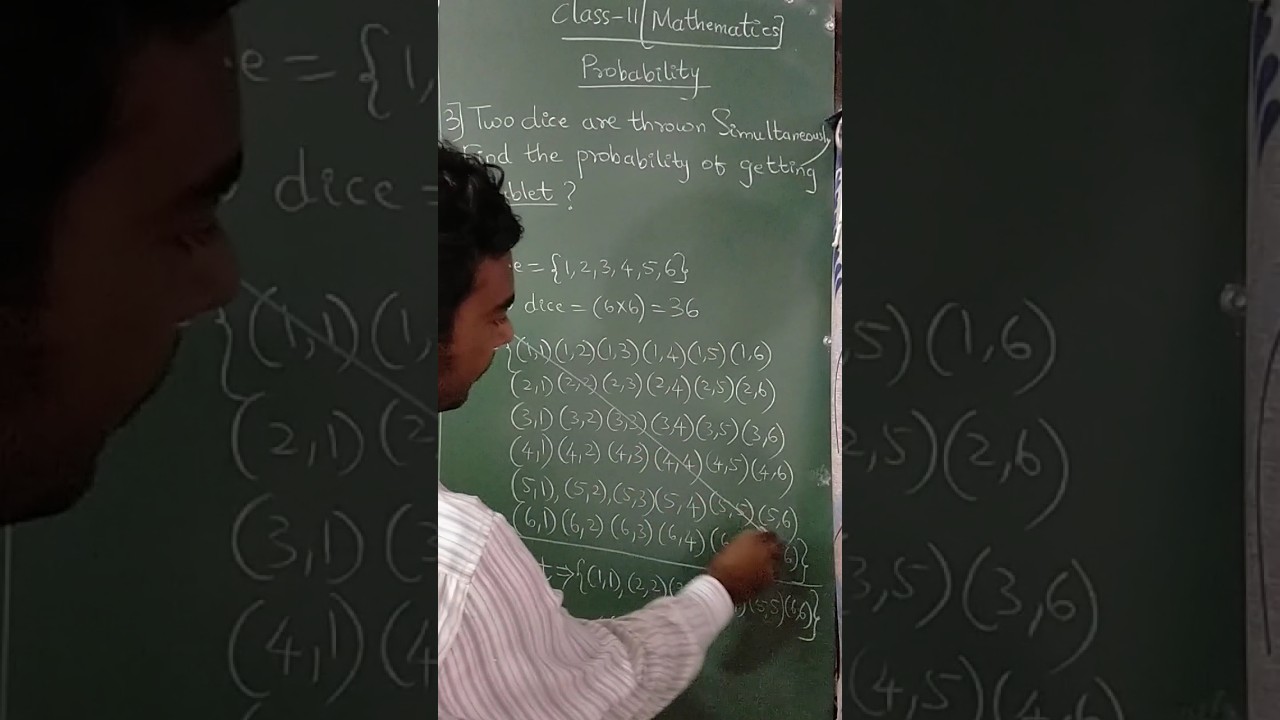 Class-11 [Mathematics]
Probability
3] Two dice are thrown Simultaneously
Find the probability of getting
?
= {1,2,3,4,5,6}
dice = (6x6) = 36
{(1,1)(1,2)(1,3)(1,4)(1,5)(1,6)
(2,1)(2,2)(2,3)(2,4)(2,5)(2,6)
(3,1)(3,2)(3,3)(3,4)(3,5)(3,6)
(4,1)(4,2)(4,3)(4,4)(4,5)(4,6)
(5,1),(5,2),(5,3)(5,4)(5,5)(5,6)
(6,1)(6,2)(6,3)(6,4)
⇒{(1,1),(2,2) (5,5)(6,6)}